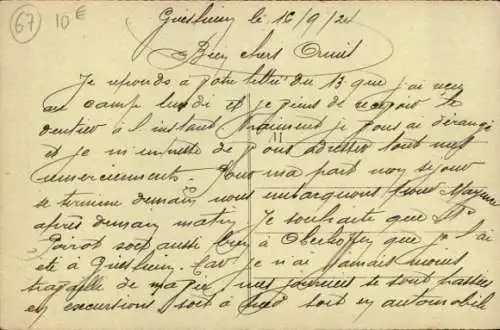 67 10 €
Griesheim le 16/9/24
Bien chers Amis
Je reponds à votre lettre du 13 que j'ai reçu
au camp lundi et je viens de recevoir le
dentier à l'instant Vraiment je vous ai dérangé
et je m'en de vous adresser tout mes
remerciements. Pour ma part mon séjour
se termine demain nous embarquons pour Mayence
après demain matin. Je souhaite que Mr
soit aussi bien à Oberhoffen que je l'ai
été à Griesheim. Car je n'ai jamais moins
travaillé de ma vie, mes journées se sont passées
en excursions soit à pied soit en automobile